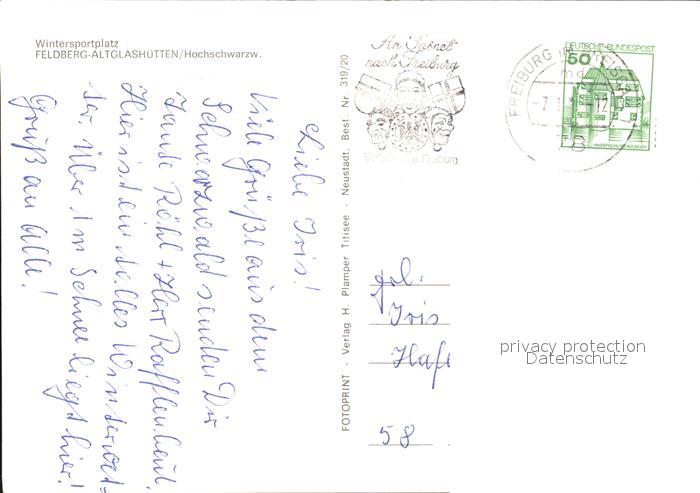 Wintersportplatz
FELDBERG-ALTGLASHÜTTEN/Hochschwarzw.
Liebe Iris!
Viele Grüße aus dem
Schwarzwald senden Dir
Tante Röhl + Herr
Hier ist ein tolles Winterwet-
ter. Über 1 m Schnee liegt hier!
Gruß an alle!
FOTOPRINT - Verlag H. Plamper Titisee - Neustadt, Best Nr 319/20
An Fasnet
nach Freiburg
Freiburg
FREIBURG IM BREISGAU
md
-7.1. -12
78
DEUTSCHE BUNDESPOST
50
WASSERSCHLOSS INZLINGEN
Frl.
Iris
58
privacy protection
Datenschutz